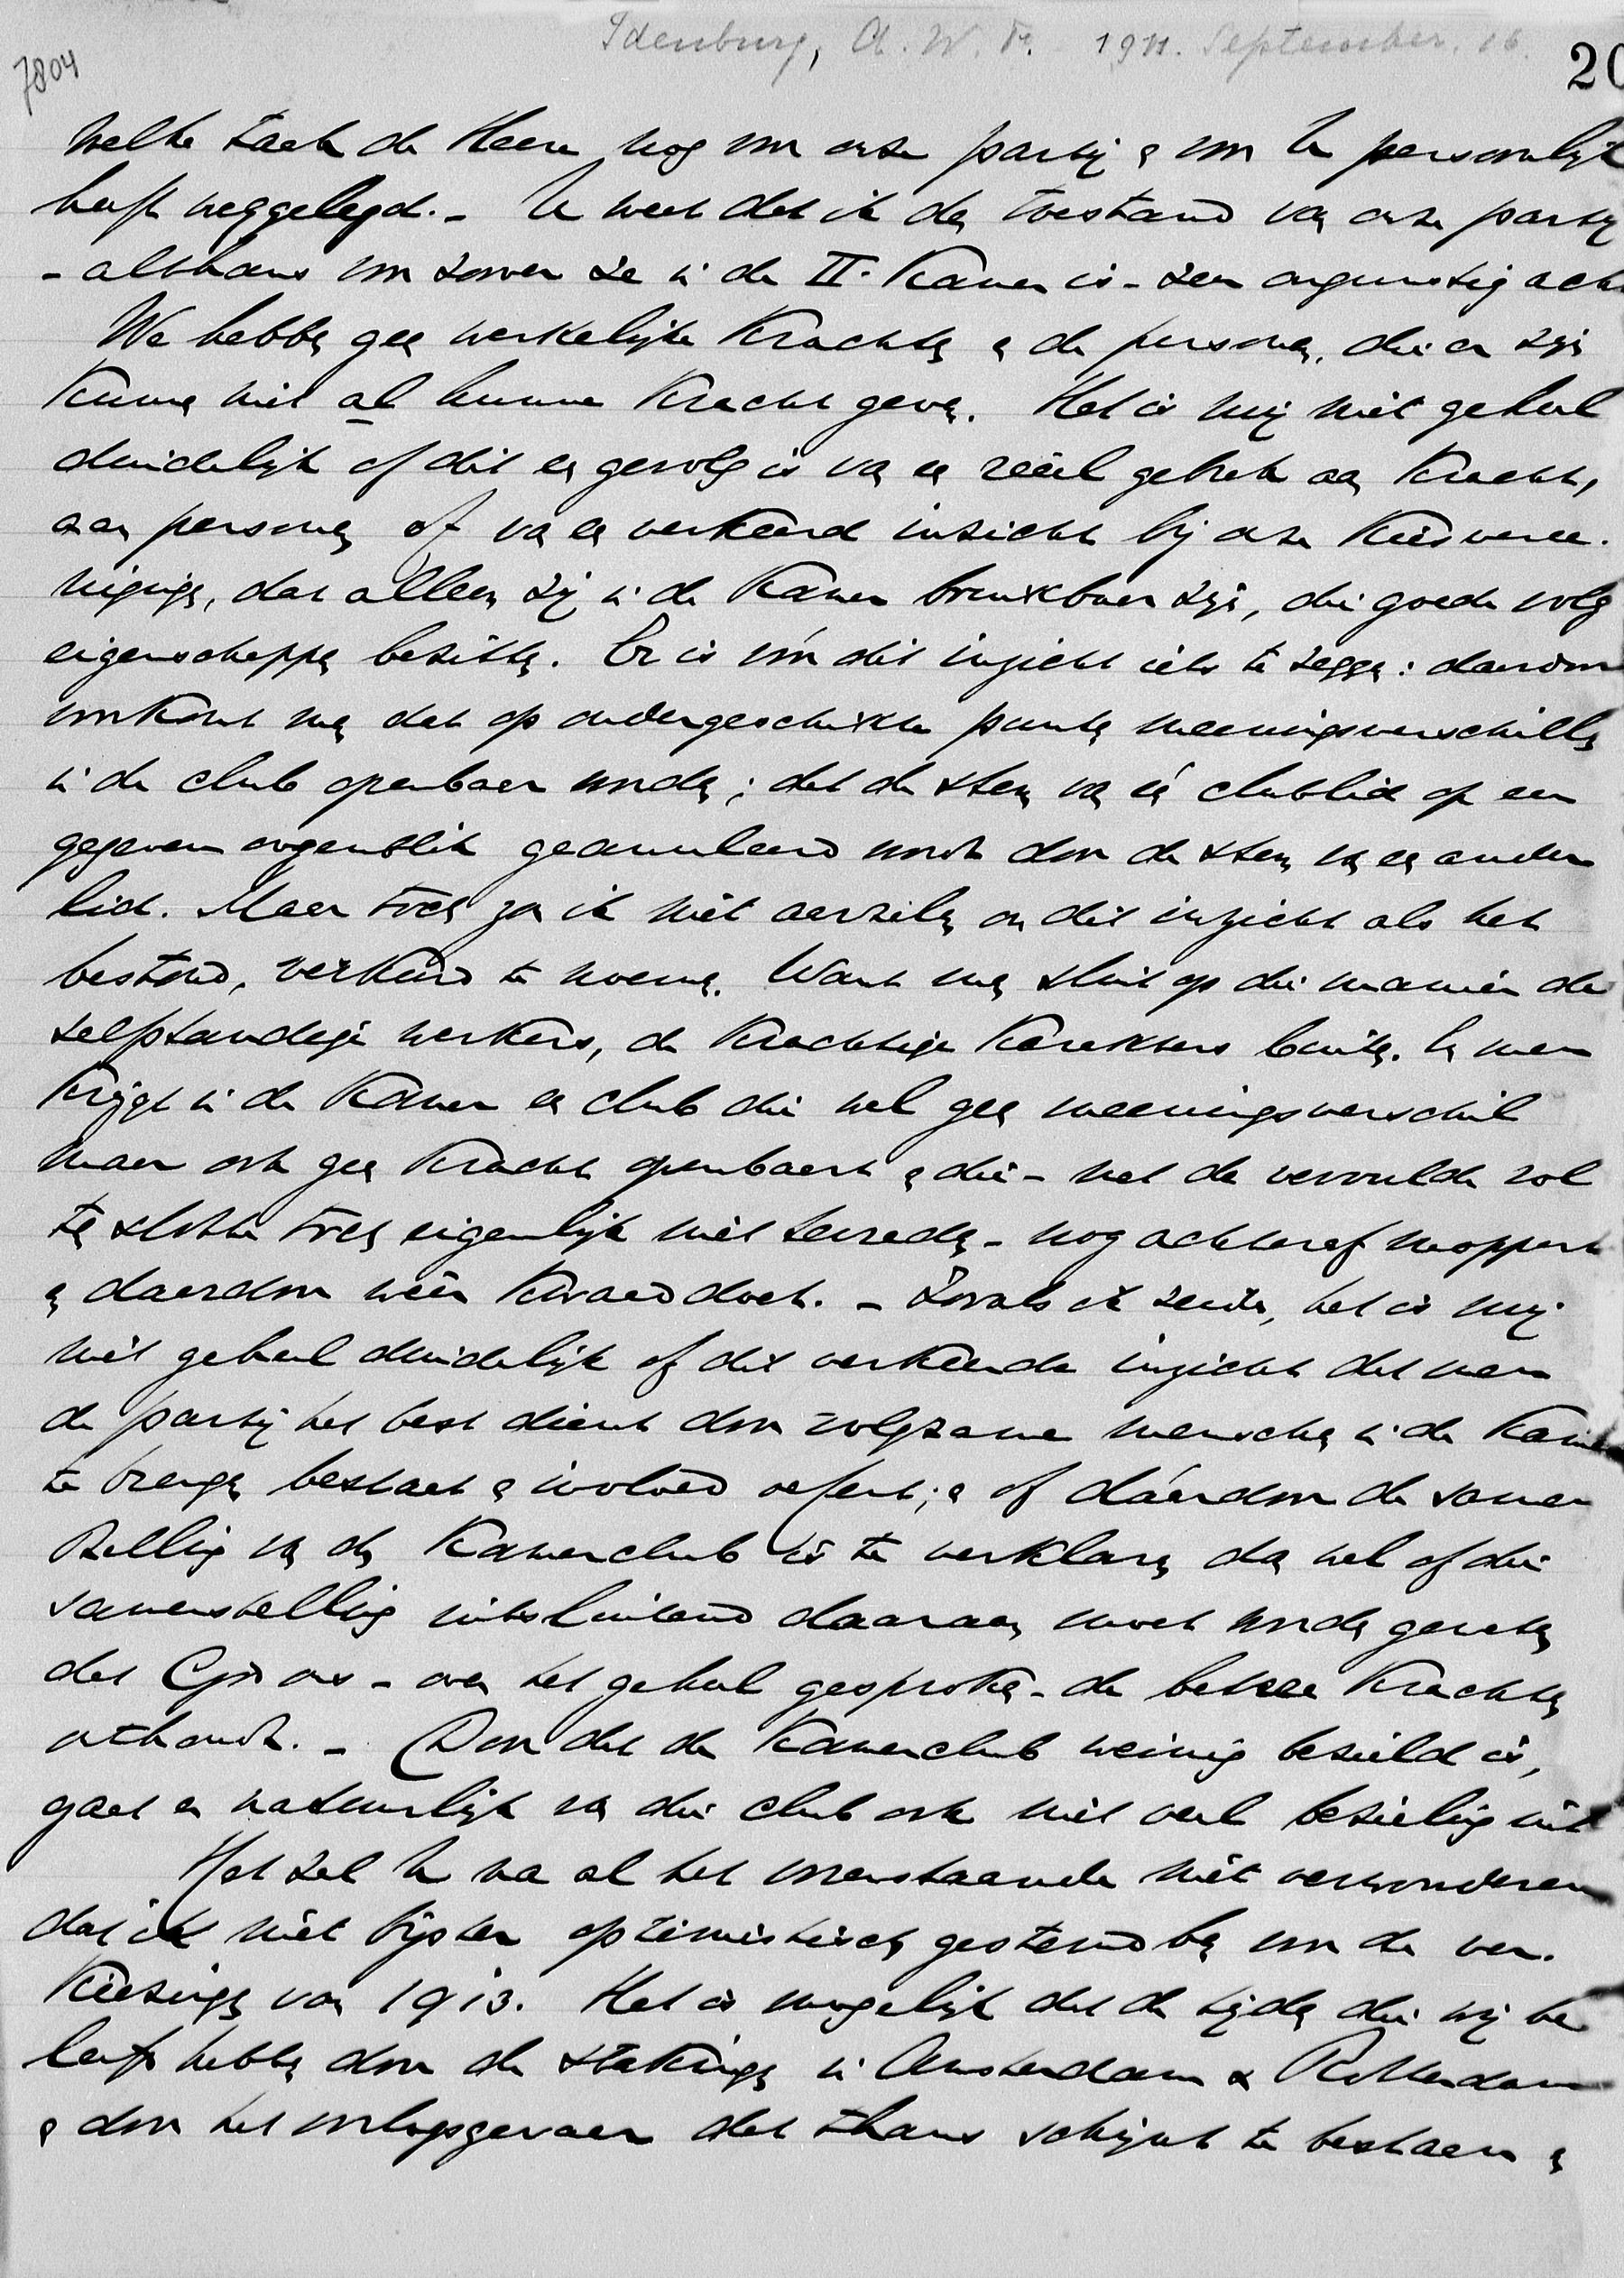 Idenburg, A. W. F. 1911. September. 16.
7804
20
Welke taak de Heere nog voor onze partij & voor U persoonlijk
heeft weggelegd. - U weet dat ik den toestand van onze partij
- althans voor zoover ze in de IIe Kamer is - zeer ongunstig acht
We hebben geen werkelijke krachten & de personen, die er zijn
kunnen niet al hunne kracht geven. Het is mij niet geheel
duidelijk of dit een gevolg is van een reëel gebrek aan kracht,
aan personen of van een verkeerd inzicht bij onze Kiesveree-
nigingen, dat alleen zij in de Kamer bruikbaar zijn, die goede volg
eigenschappen bezitten. Er is vóór dit inzicht iets te zeggen: daardoor
voorkomt men dat op ondergeschikte punten meeningsverschillen
in de club openbaar worden; dat de stem van één clublid op een
gegeven oogenblik geannuleerd wordt door de stem van een ander
lid. Maar toch zou ik niet aarzelen om dit inzicht als het
bestond, verkeerd te noemen. Want men sluit op die manier de
zelfstandige werkers, de krachtige karakters buiten. En men
krijgt in de Kamer een club die wel geen meeningsverschil
maar ook geen kracht openbaart & die - met de vervulde rol
ten slotte toch eigenlijk niet tevreden - nog achteraf moppert
& daardoor weer kwaad doet. - Zooals ik zeide, het is mij
niet geheel duidelijk of dit verkeerde inzicht dat men
de partij het best dient door volgzame menschen in de Kamer
te brengen bestaat & invloed oefent; & of dáárdoor de samen
stelling van de Kamerclub is te verklaren dan wel of die
samenstelling uitsluitend daaraan moet worden geweten
dat God ons - over het geheel gesproken - de betere krachten
onthoudt. - Doordat de Kamerclub weinig bezield is,
gaat er natuurlijk van die club ook niet veel bezieling uit
Het zal U na al het voorenstaande niet verwonderen
dat ik niet bijster optimistisch gestemd ben voor de ver-
kiezingen van 1913. Het is mogelijk dat de tijden die wij be
leefd hebben door de stakingen in Amsterdam & Rotterdam
& door het oorlogsgevaar dat thans schijnt te bestaan &